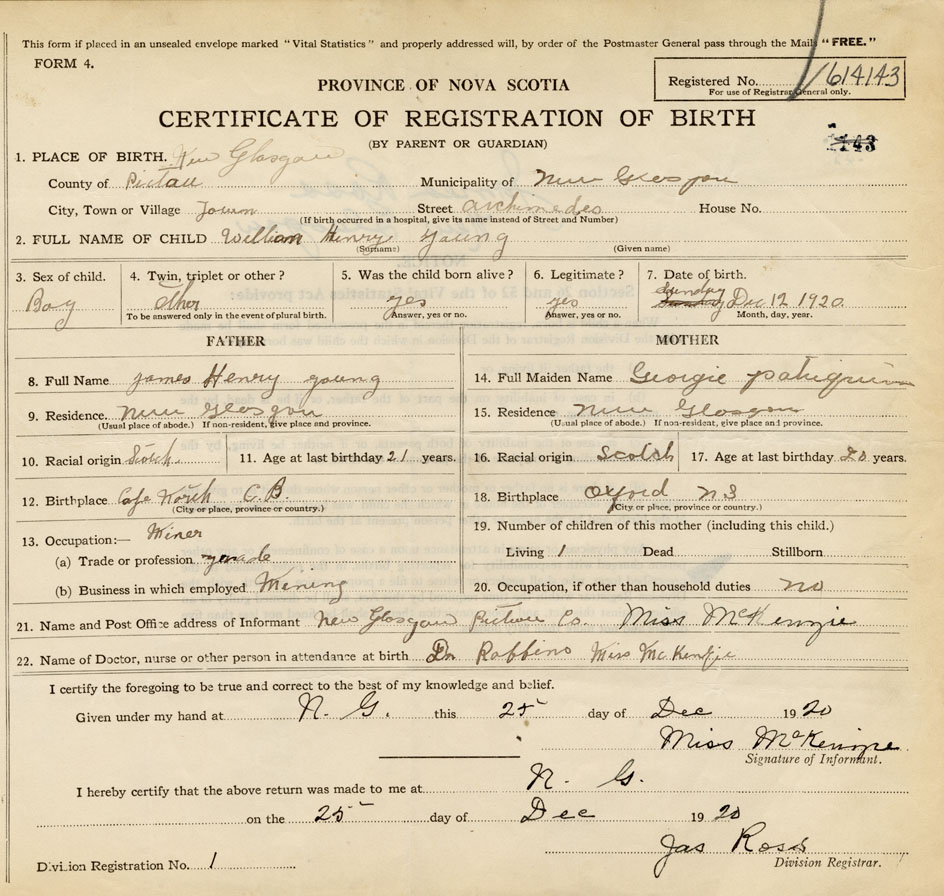 This form if placed in an unsealed envelope marked "Vital Statistics" and properly addressed will, by order of the Postmaster General pass through the Mail "FREE."
FORM 4.
PROVINCE OF NOVA SCOTIA
Registered No. 614143
For use of Registrar General only.
CERTIFICATE OF REGISTRATION OF BIRTH
(BY PARENT OR GUARDIAN)
143
1. PLACE OF BIRTH. New Glasgow
County of Pictou Municipality of New Glasgow
City, Town or Village Town Street archimedes House No.
(If birth occurred in a hospital, give its name instead of Street and Number)
2. FULL NAME OF CHILD William Henry Young
(Surname) (Given name)
3. Sex of child. 4. Twin, triplet or other? 5. Was the child born alive? 6. Legitimate? 7. Date of birth.
Sunday
Boy other yes yes Dec 12 1920
To be answered only in the event of plural birth. Answer, yes or no. Answer, yes or no. Month, day, year.
FATHER MOTHER
8. Full Name James Henry young 14. Full Maiden Name Georgie
9. Residence. New Glasgow 15. Residence New Glasgow
(Usual place of abode.) If non-resident, give place and province. (Usual place of abode.) If non-resident, give place and province.
10. Racial origin Scotch 11. Age at last birthday 21 years. 16. Racial origin Scotch 17. Age at last birthday 20 years.
12. Birthplace Cape North C. B. 18. Birthplace Oxford NS
(City or place, province or country.) (City or place, province or country.)
13. Occupation:— Miner 19. Number of children of this mother (including this child.)
(a) Trade or profession Living 1 Dead Stillborn
(b) Business in which employed Mining 20. Occupation, if other than household duties no
21. Name and Post Office address of Informant New Glasgow Pictou Co. Miss McKenzie
22. Name of Doctor, nurse or other person in attendance at birth Dr Robbins Miss McKenzie
I certify the foregoing to be true and correct to the best of my knowledge and belief.
Given under my hand at N. G. this 25 day of Dec 1920
Miss McKenzie
Signature of Informant.
I hereby certify that the above return was made to me at N. G.
on the 25 day of Dec 1920
Jas Ross
Division Registrar.
Division Registration No. 1